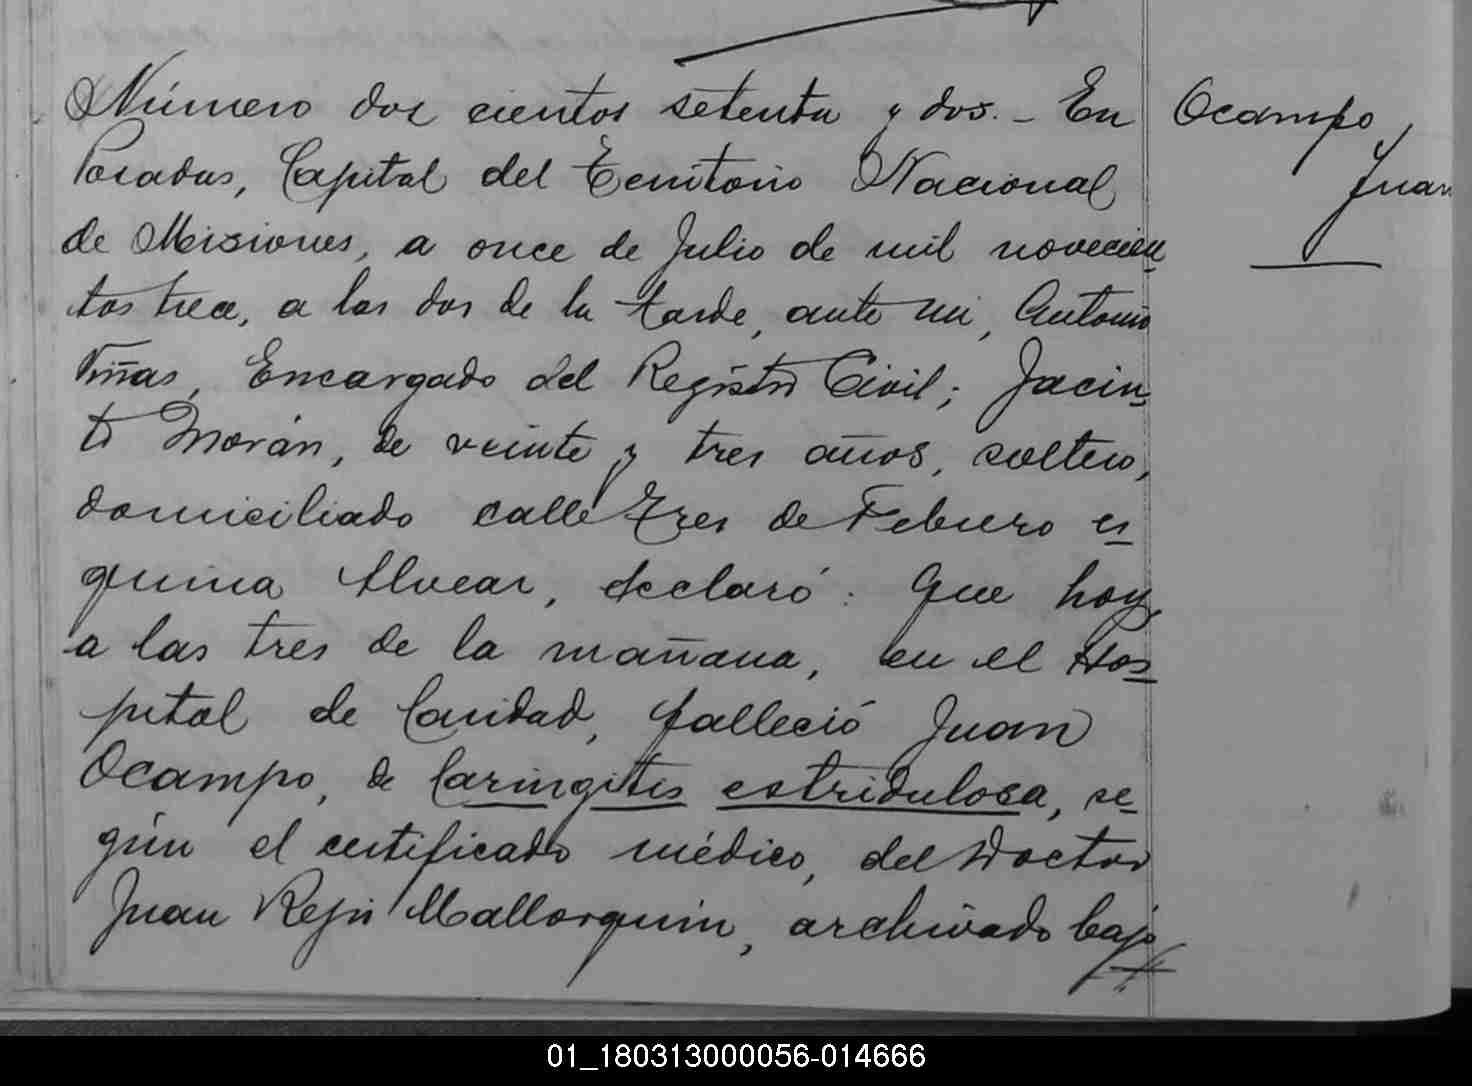 Número dos cientos setenta y dos. - En
Posadas, Capital del Territorio Nacional
de Misiones, a once de Julio de mil novecien
tos trece, a las dos de la tarde, ante mi, Antonio
Viñas, Encargado del Registro Civil; Jacin-
to Morán, de veinte y tres años, soltero,
domiciliado calle Tres de Febrero es
quina Alvear, declaró: Que hoy
a las tres de la mañana, en el Hos
pital de Caridad, falleció Juan
Ocampo, de laringitis estridulosa, se-
gún el certificado médico, del Doctor
Juan Mallorquin, archivado bajo
Ocampo,
Juan
01_180313000056-014666